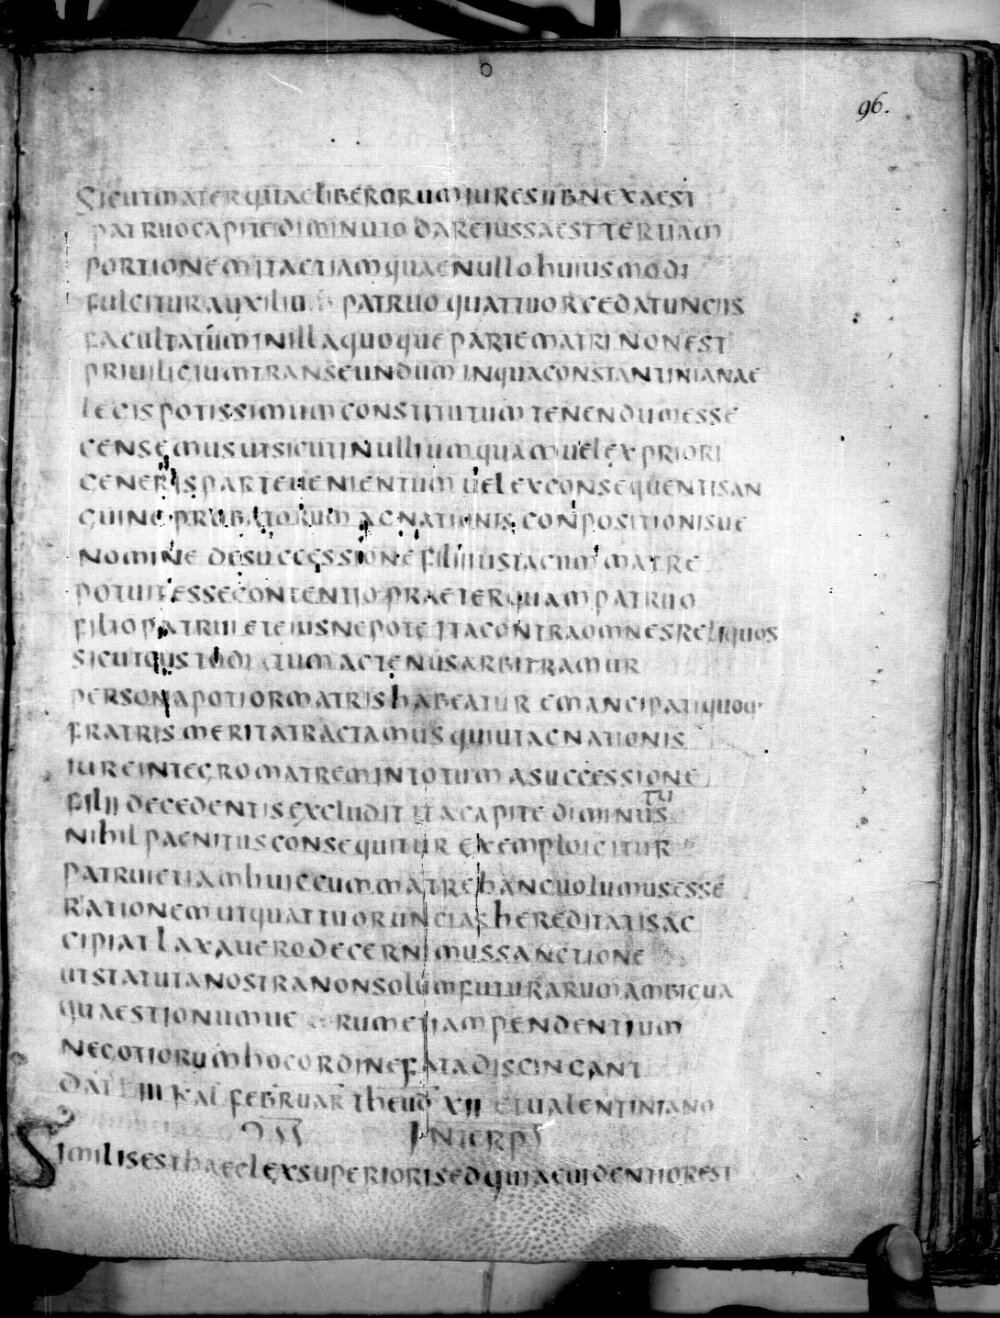 96.
SICUTIMATERQUAELIBERORUMIURESUBNEXAEST
PATRUOCAPITEDIMINUTO DAREIUSSAESTTERTIAM
PORTIONEMITAETIAMQUAENULLOHUIUSMODI
FULCITURAUXILIO PATRUO QUATTUORCEDATUNCIIS
FACULTATUMINILLAQUOQUEPARTEMATRINONEST
PRIUILIGIUMTRANSEUNDUMINQUACONSTANTINIANAE
LEGISPOTISSIMUMCONSTITUTUMTENENDUMESSE
CENSEMUSUTSICUTINULLIUMQUAMUELEXPRIORI
GENERISPARTEUENIENTIUMUELEXCONSEQUENTISAN
GUINE PROBATORUM AGNATIONIS CONPOSITIONISUE
NOMINE DESUCCESSIONEFILIIIUSTACUMMATRE
POTUITESSECONTENTIOPRAETERQUAMPATRUO
FILIOPATRUIETEIUSNEPOTEITACONTRAOMNESRELIQUOS
SICUTQUSTODICTUMACTENUSARBITRAMUR
PERSONAPOTIORMATRISHABEATUR EMANCIPATIQUOQ·
FRATRISMERITATRACTAMUSQUIUTAGNATIONIS
IUREINTEGROMATREMINTOTUMASUCCESSIONE
TU
FILIIDECEDENTISEXCLUDITITACAPITEDIMINUS
NIHILPAENITUSCONSEQUITUR EXEMPLOIGITUR
PATRUIETIAMHUICCUMMATREHANCUOLUMUSESSE
RATIONEMUTQUATTUORUNCIASHEREDITATISAC
CIPIATLAXAUERODECERNIMUSSANCTIONE
UTSTATUTANOSTRANONSOLUMFUTURARUMAMBIGUA
QUAESTIONUMUE RUMETIAMPENDENTIUM
NEGOTIORUMHOCORDINEFATADISCINGANT
DAT III KAL FEBRUAR THEUD XII ETUALENTINIANO
INTERPT
SIMILISESTHAECLEXSUPERIORISEDQUIAEUIDENTIOREST